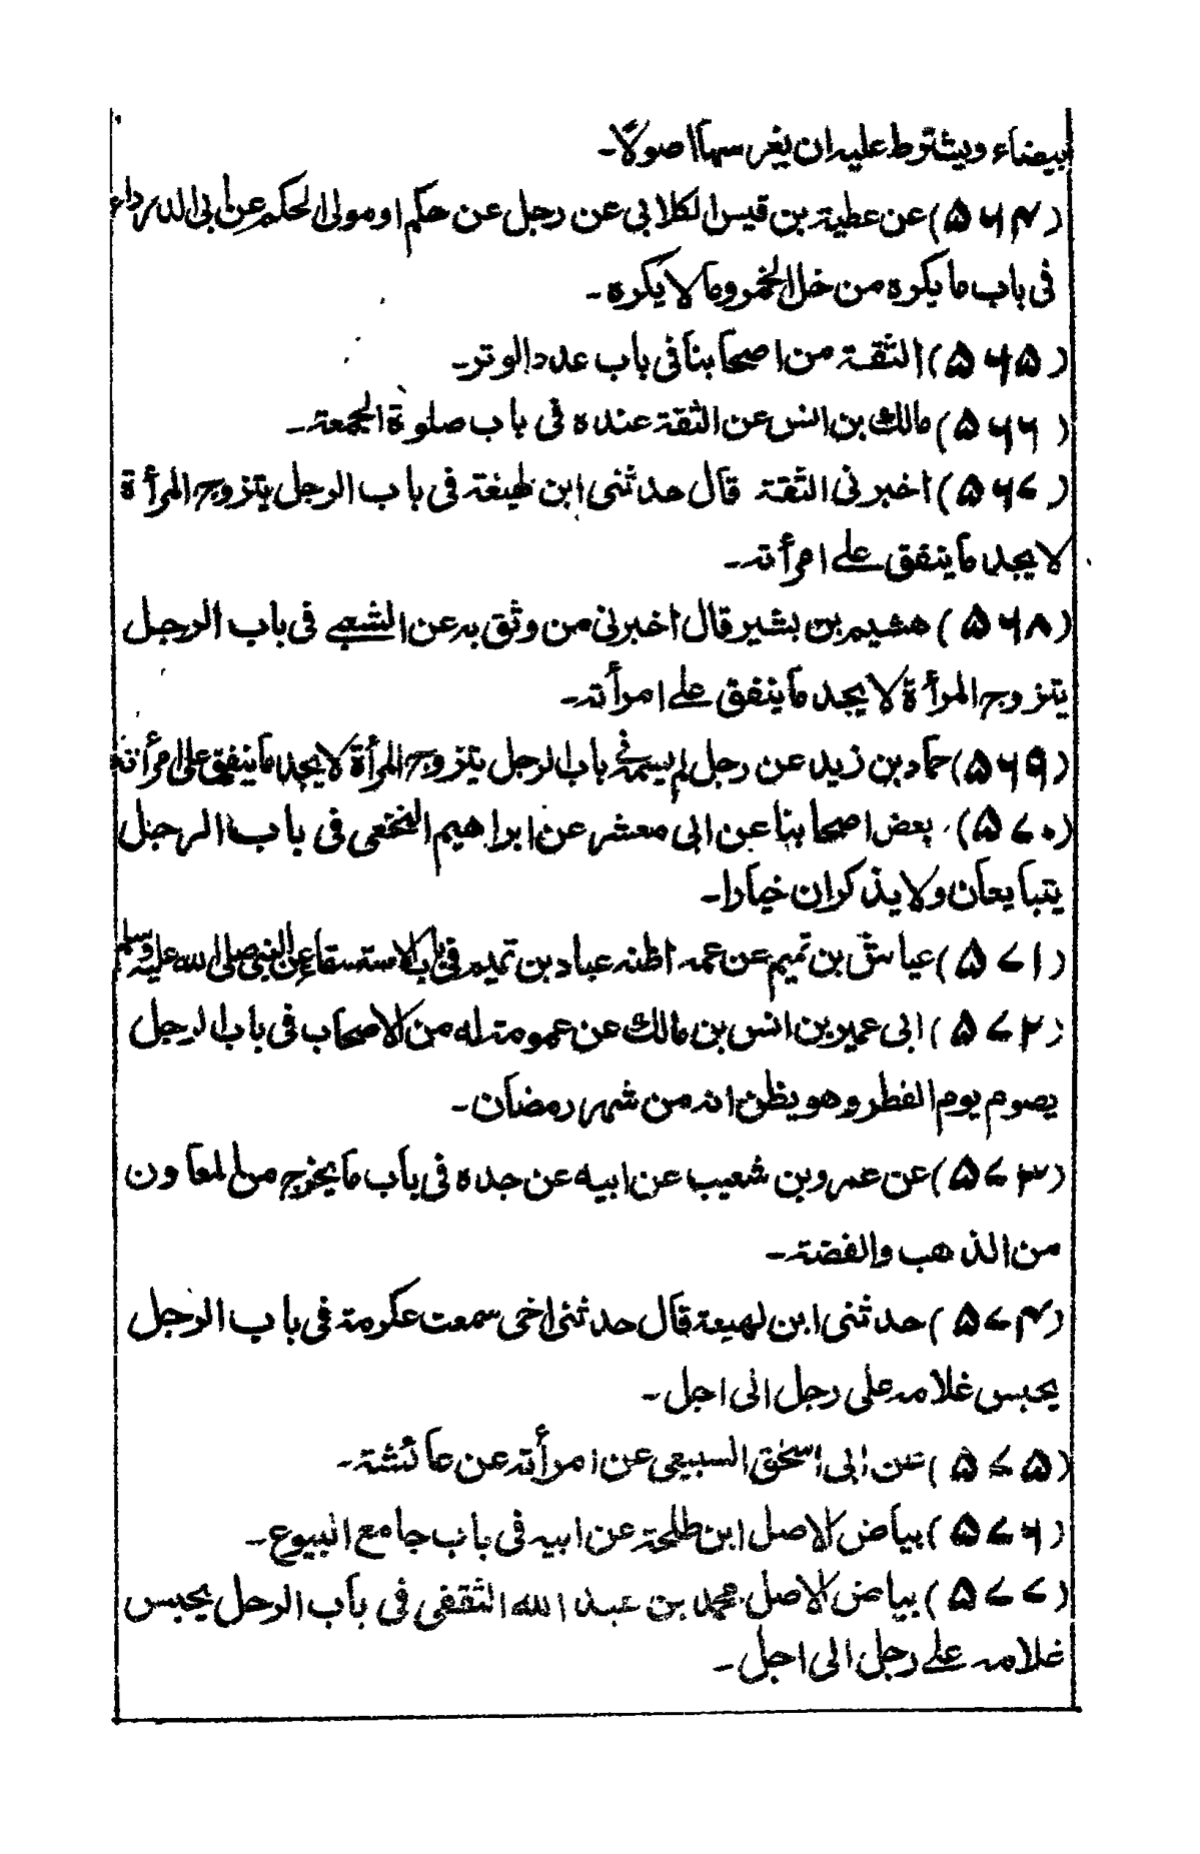 بيضاء ويشترط عليه ان يغرسها اصولا۔
(۵۶۴) عن عطية بن قيس الكلابي عن رجل عن حكم او مولى الحكم عن ابي الدرداء
في باب ما يكره من خل الخمر وما لا يكره۔
(۵۶۵) الثقة من اصحابنا في باب عدد الوتر۔
(۵۶۶) مالك بن انس عن الثقة عنده في باب صلوة الجمعة۔
(۵۶۷) اخبرني الثقة قال حدثني ابن لهيغة في باب الرجل يتزوج المرأة
لا يجد ما ينفق على امرأته۔
(۵۶۸) هشيم بن بشير قال اخبرني من وثق به عن الشعبي في باب الرجل
يتزوج المرأة لا يجد ما ينفق على امرأته۔
(۵۶۹) حماد بن زيد عن رجل لم يسمه في باب الرجل يتزوج المرأة لا يجد ما ينفق على امرأته
(۵۷۰) بعض اصحابنا عن ابي معشر عن ابراهيم النخعي في باب الرجل
يتبايعان ولا يذكران خيارا۔
(۵۷۱) عباس بن تميم عن عمه اظنه عباد بن تميم في باب الاستسقاء عن النبي صلى الله عليه وسلم
(۵۷۲) ابي عمير بن انس بن مالك عن عمومة له من الاصحاب في باب الرجل
يصوم يوم الفطر وهو يظن انه من شهر رمضان۔
(۵۷۳) عن عمرو بن شعيب عن ابيه عن جده في باب ما يخرج من المعاون
من الذهب والفضة۔
(۵۷۴) حدثني ابن لهيعة قال حدثني اخي سمعت عكرمة في باب الرجل
يحبس غلامه على رجل الى اجل۔
(۵۷۵) عن ابي اسحق السبيعي عن امرأته عن عائشة۔
(۵۷۶) بياض الاصل ابن طلحة عن ابيه في باب جامع البيوع۔
(۵۷۷) بياض الاصل محمد بن عبد الله الثقفي في باب الرجل يحبس
غلامه على رجل الى اجل۔